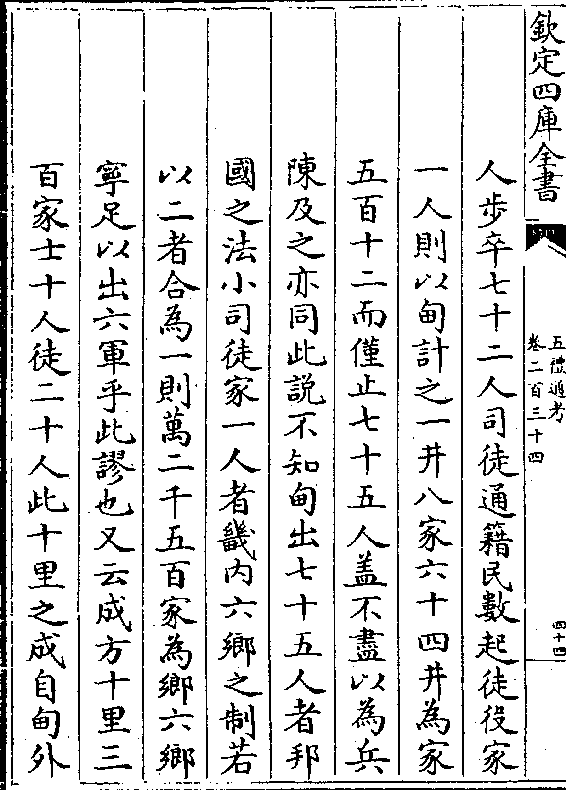 欽定四庫全書
五禮通考
卷二百三十四
四十四
人步卒七十二人司徒通籍民數起徒役家
一人則以甸計之一井八家六十四井為家
五百十二而僅止七十五人盖不盡以為兵
陳及之亦同此説不知甸出七十五人者邦
國之法小司徒家一人者畿内六鄉之制若
以二者合為一則萬二千五百家為鄉六鄉
寧足以出六軍乎此謬也又云成方十里三
百家士十人徒二十人此十里之成自甸外